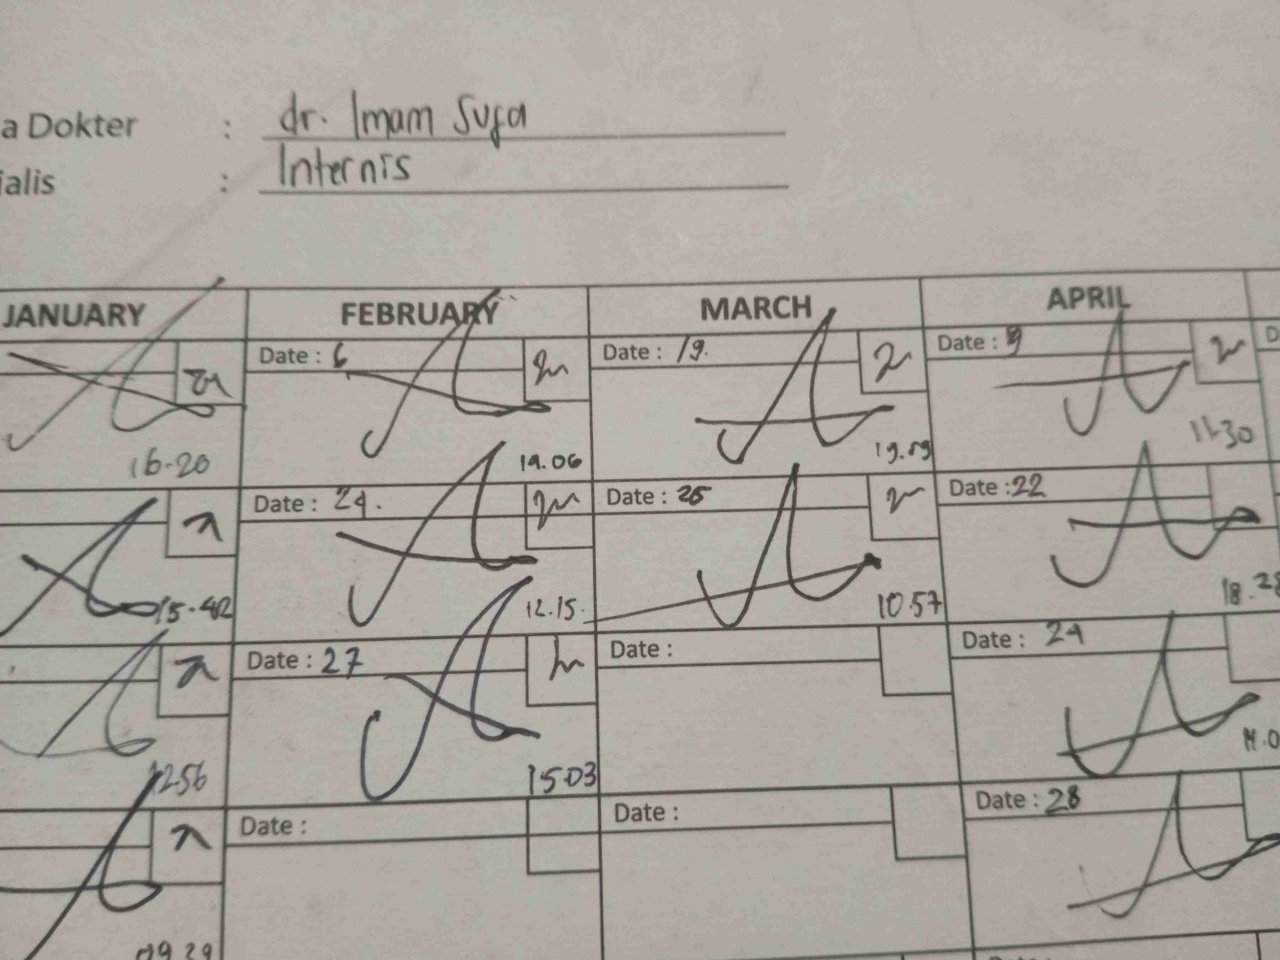 a Dokter : dr. Imam Suja
ialis : Internis
JANUARY FEBRUARY MARCH APRIL
Date : 6 Date : 19. Date : 9
16.20 19.06 19.59 11.30
Date : 24. Date : 25 Date :22
15.42 12.15. 10.57 18.28
Date : 27 Date : Date : 24
12.56 15.03
Date : Date : Date : 28
09.29